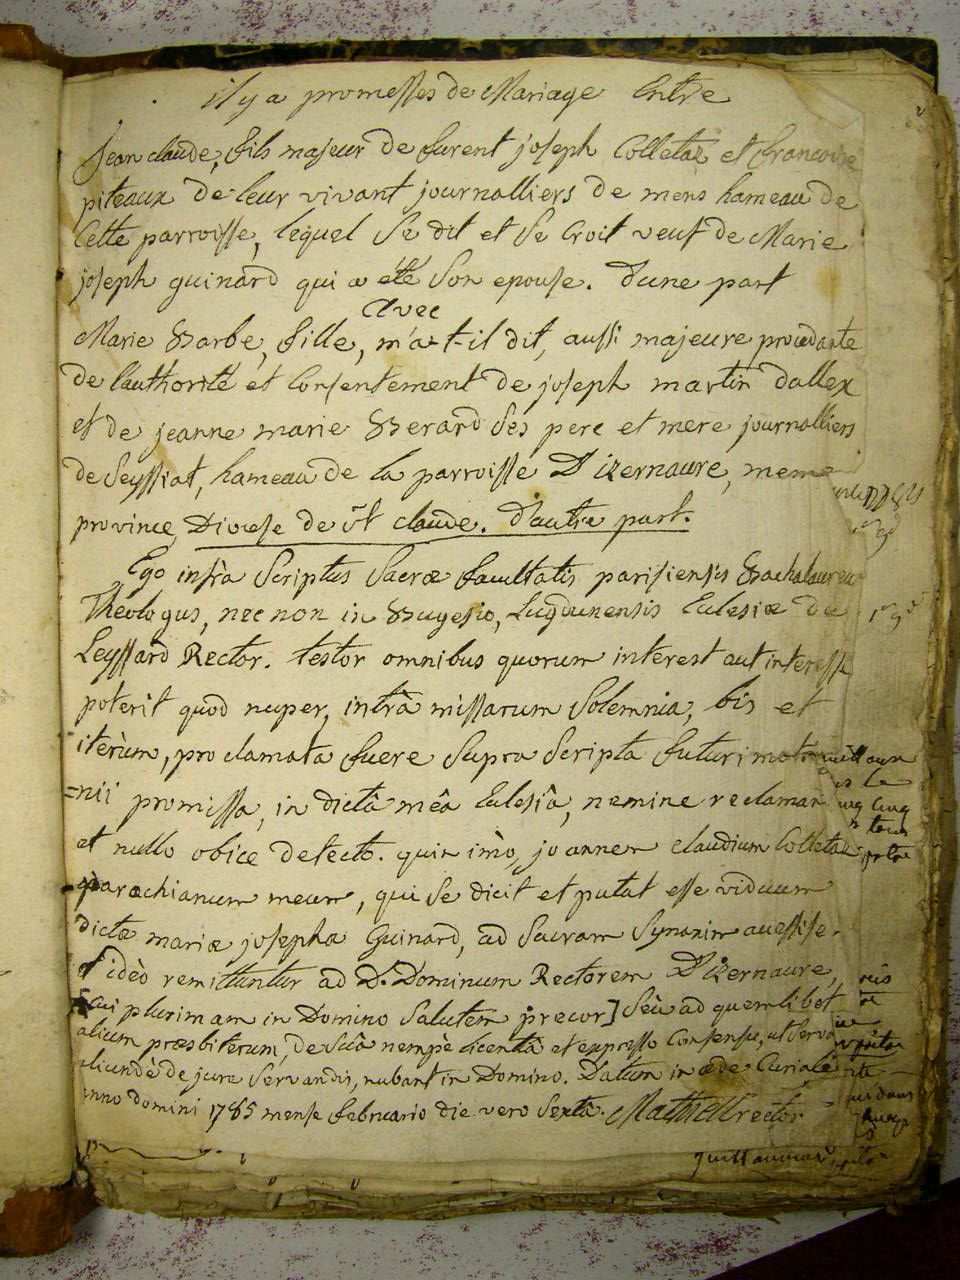 il y a promesses de Mariage Entre
Jean claude, fils majeur de furent joseph Colletaz et francoise
piteaux de leur vivant journalliers de mens hameau de
Cette parroisse, lequel Se dit et Se Croit veuf de Marie
joseph guinard qui a eté Son epouse. D'une part
avec
Marie Barbe, fille, m'a-t-il dit, aussi majeure procedante
de l'authorité et Consentement de joseph martin dallex
et de jeanne marie Berard Ses pere et mere journalliers
de Seyssiat, hameau de la parroisse D'izernaure, meme
province, Diocese de St claude. D'autre part.
Ego infrà Scriptus Sacræ facultatis parisiensis Bachalaureus
Theologus, nec non in Bugesio, Lugdunensis Eclesiæ de
Leyssard Rector. testor omnibus quorum interest aut interesse
poterit quòd nuper, intrà missarum Solemnia, bis et
iterùm, proclamata fuere Supra Scripta futuri matri
=nii promissa, in dictâ meâ Eclesiâ, nemine reclaman
et nullo obice detecto. quin imò, joannem claudium Colletaz
parochianum meum, qui Se dicit et putat esse viduum
dictæ mariæ josephæ Guinard, ad Sacram Synaxim accessisse.
et ideò remittuntur ad D. Dominum Rectorem D'izernaure,
[cui plurimam in Domino Salutem precor] Seù ad quemlibet
alium præsbiterum, de Suâ nempè licentiâ et expresso Consensu, ut Serva
aliundè de jure Servandis, nubant in Domino. Datum in æde Curiali
anno domini 1785 mense februario die vero Sextâ. Mathieu rector